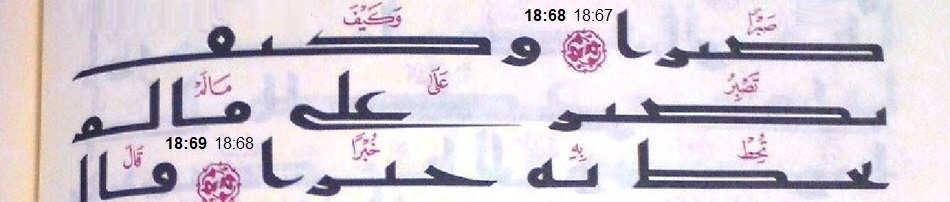 صَبْرًا وَكَيْفَ
18:68 18:67
صبرا وكيف
تَصْبِرُ عَلَىٰ مَالَمْ
تصبر على مالم
18:69 18:68
تُحِطْ بِهِ خُبْرًا قَالَ
تحط به خبرا قال